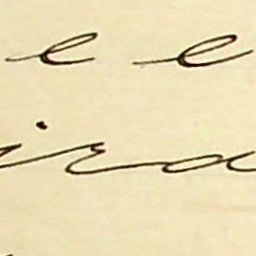 e e
ira